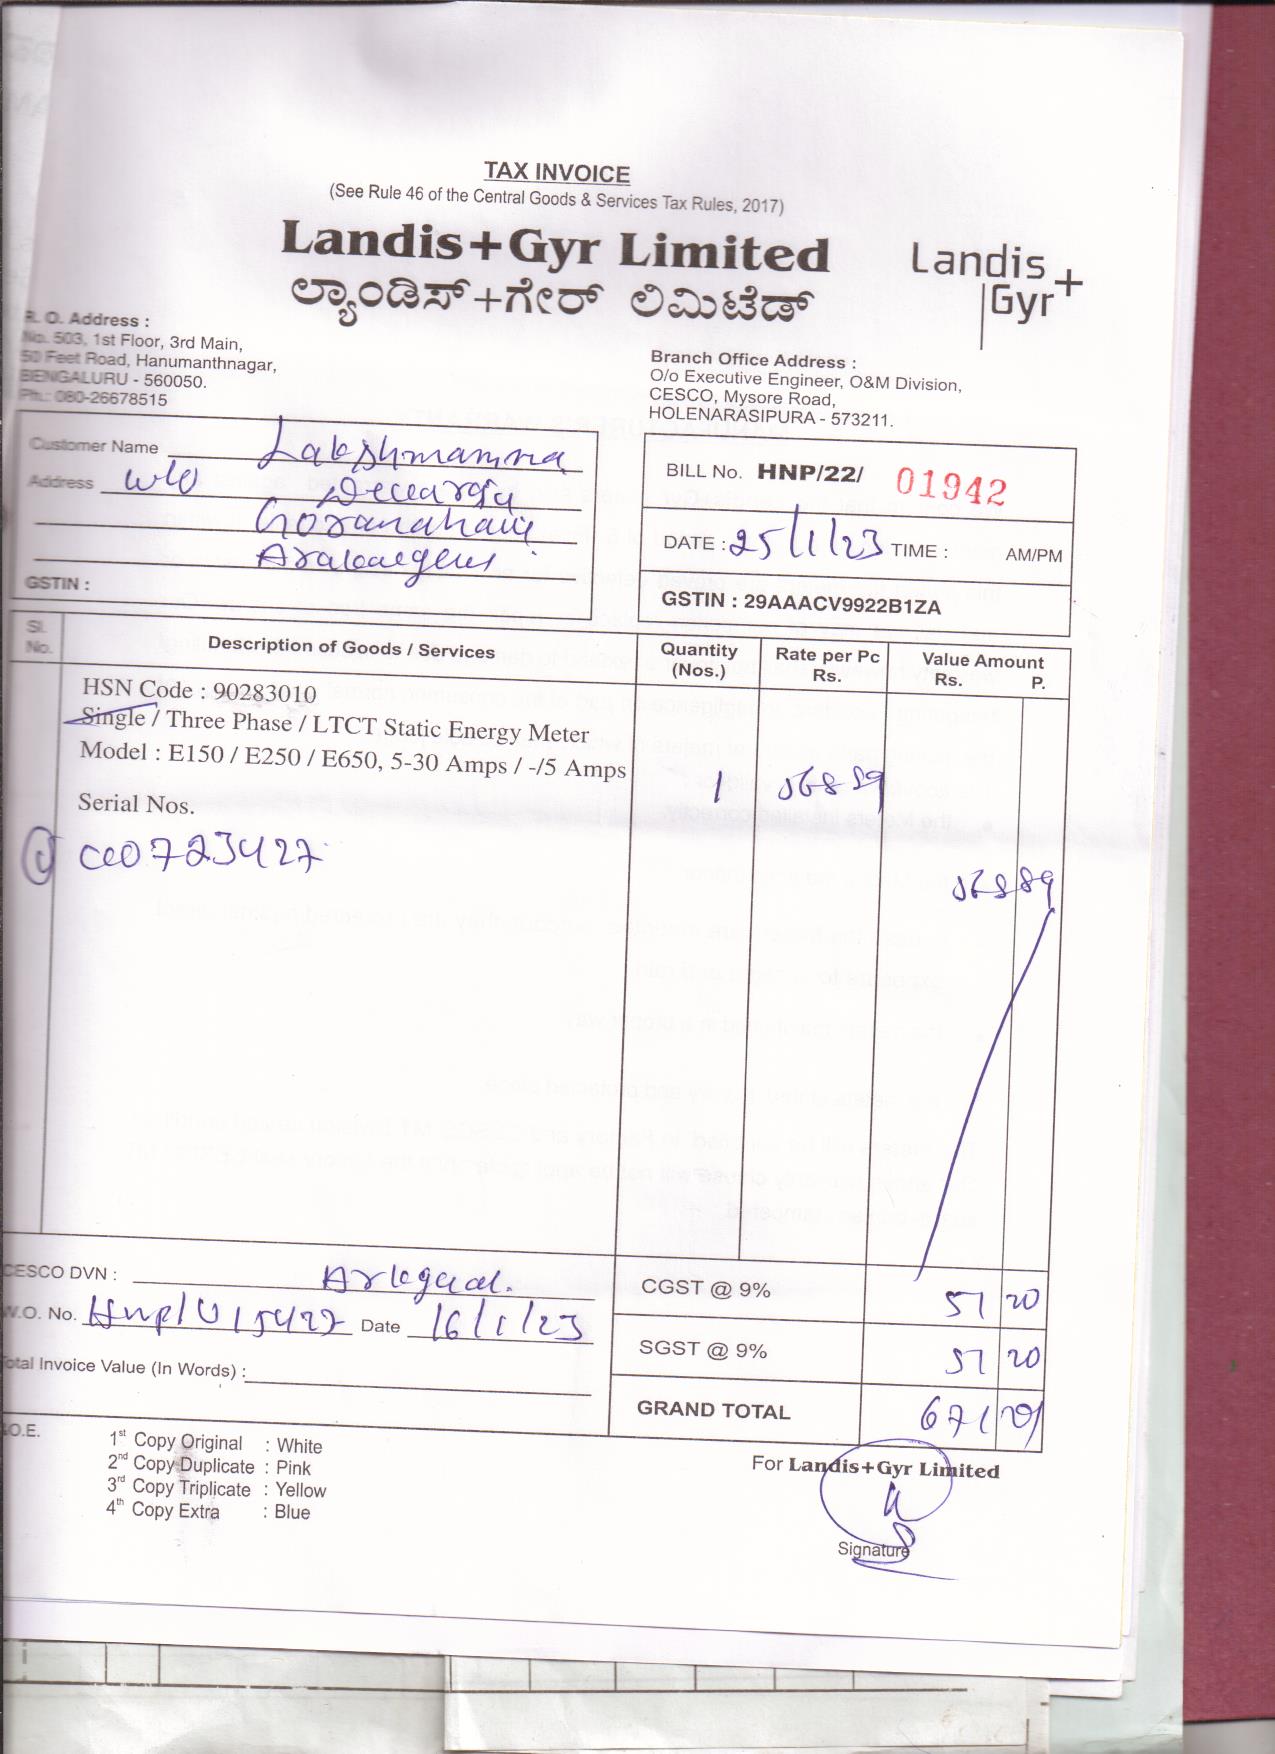 TAX INVOICE
(See Rule 46 of the Central Goods & Services Tax Rules, 2017)
Landis+Gyr Limited
ಲ್ಯಾಂಡಿಸ್+ಗೇರ್ ಲಿಮಿಟೆಡ್
Landis
Gyr+
R. O. Address :
No. 503, 1st Floor, 3rd Main,
50 Feet Road, Hanumanthnagar,
BENGALURU - 560050.
Ph.: 080-26678515
Branch Office Address :
O/o Executive Engineer, O&M Division,
CESCO, Mysore Road,
HOLENARASIPURA - 573211.
Customer Name Lakshmamma
Address w/o
GSTIN :
BILL No. HNP/22/ 01942
DATE : 25/1/23 TIME : AM/PM
GSTIN : 29AAACV9922B1ZA
Sl. No. Description of Goods / Services Quantity (Nos.) Rate per Pc Rs. Value Amount Rs. P.
HSN Code : 90283010
Single / Three Phase / LTCT Static Energy Meter
Model : E150 / E250 / E650, 5-30 Amps / -/5 Amps
1 568 89
Serial Nos.
723427
568 89
CESCO DVN :
CGST @ 9% 51 20
W.O. No. Date 16/1/23
SGST @ 9% 51 20
Total Invoice Value (In Words) :
GRAND TOTAL 671 29
O.E.
1st Copy Original : White
2nd Copy Duplicate : Pink
3rd Copy Triplicate : Yellow
4th Copy Extra : Blue
For Landis+Gyr Limited
Signature